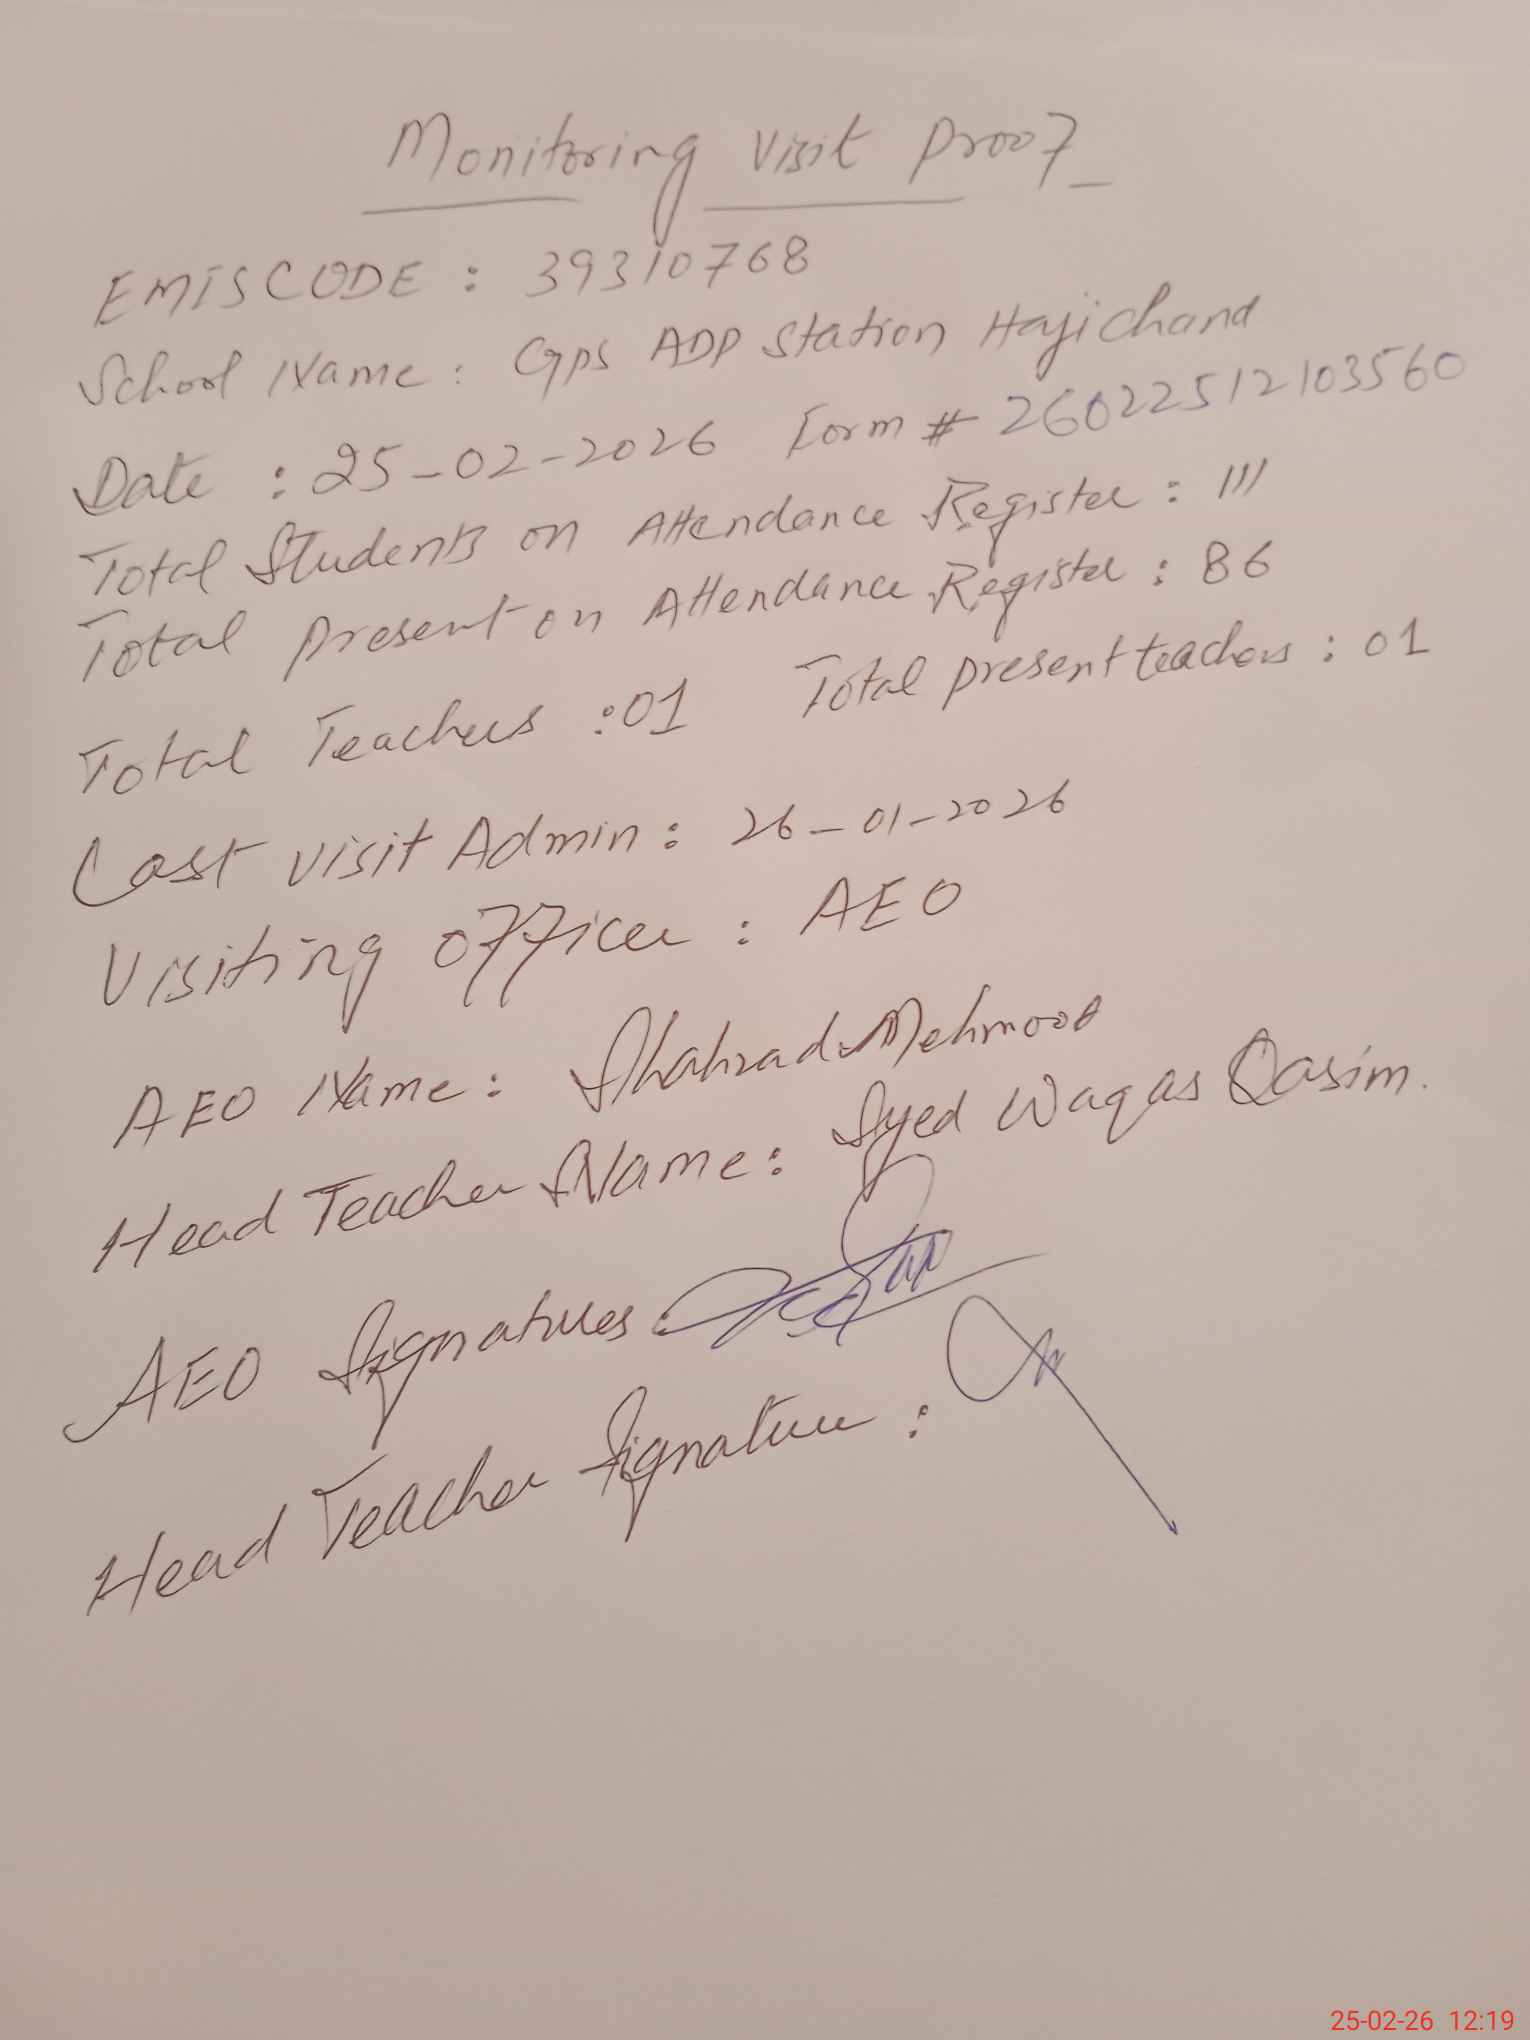 Monitoring Visit Proof
EMIS CODE : 39310768
School Name : GPS ADP Station Hajichand
Date : 25-02-2026 Form # 26022512103560
Total Students on Attendance Register : 111
Total present on Attendance Register : 86
Total Teachers : 01 Total present teachers : 01
Last visit Admin : 26-01-2026
Visiting officer : AEO
AEO Name : Shahzad Mehmood
Head Teacher Name : Syed Waqas Qasim.
AEO Signatures :
Head Teacher Signature :
25-02-26 12:19